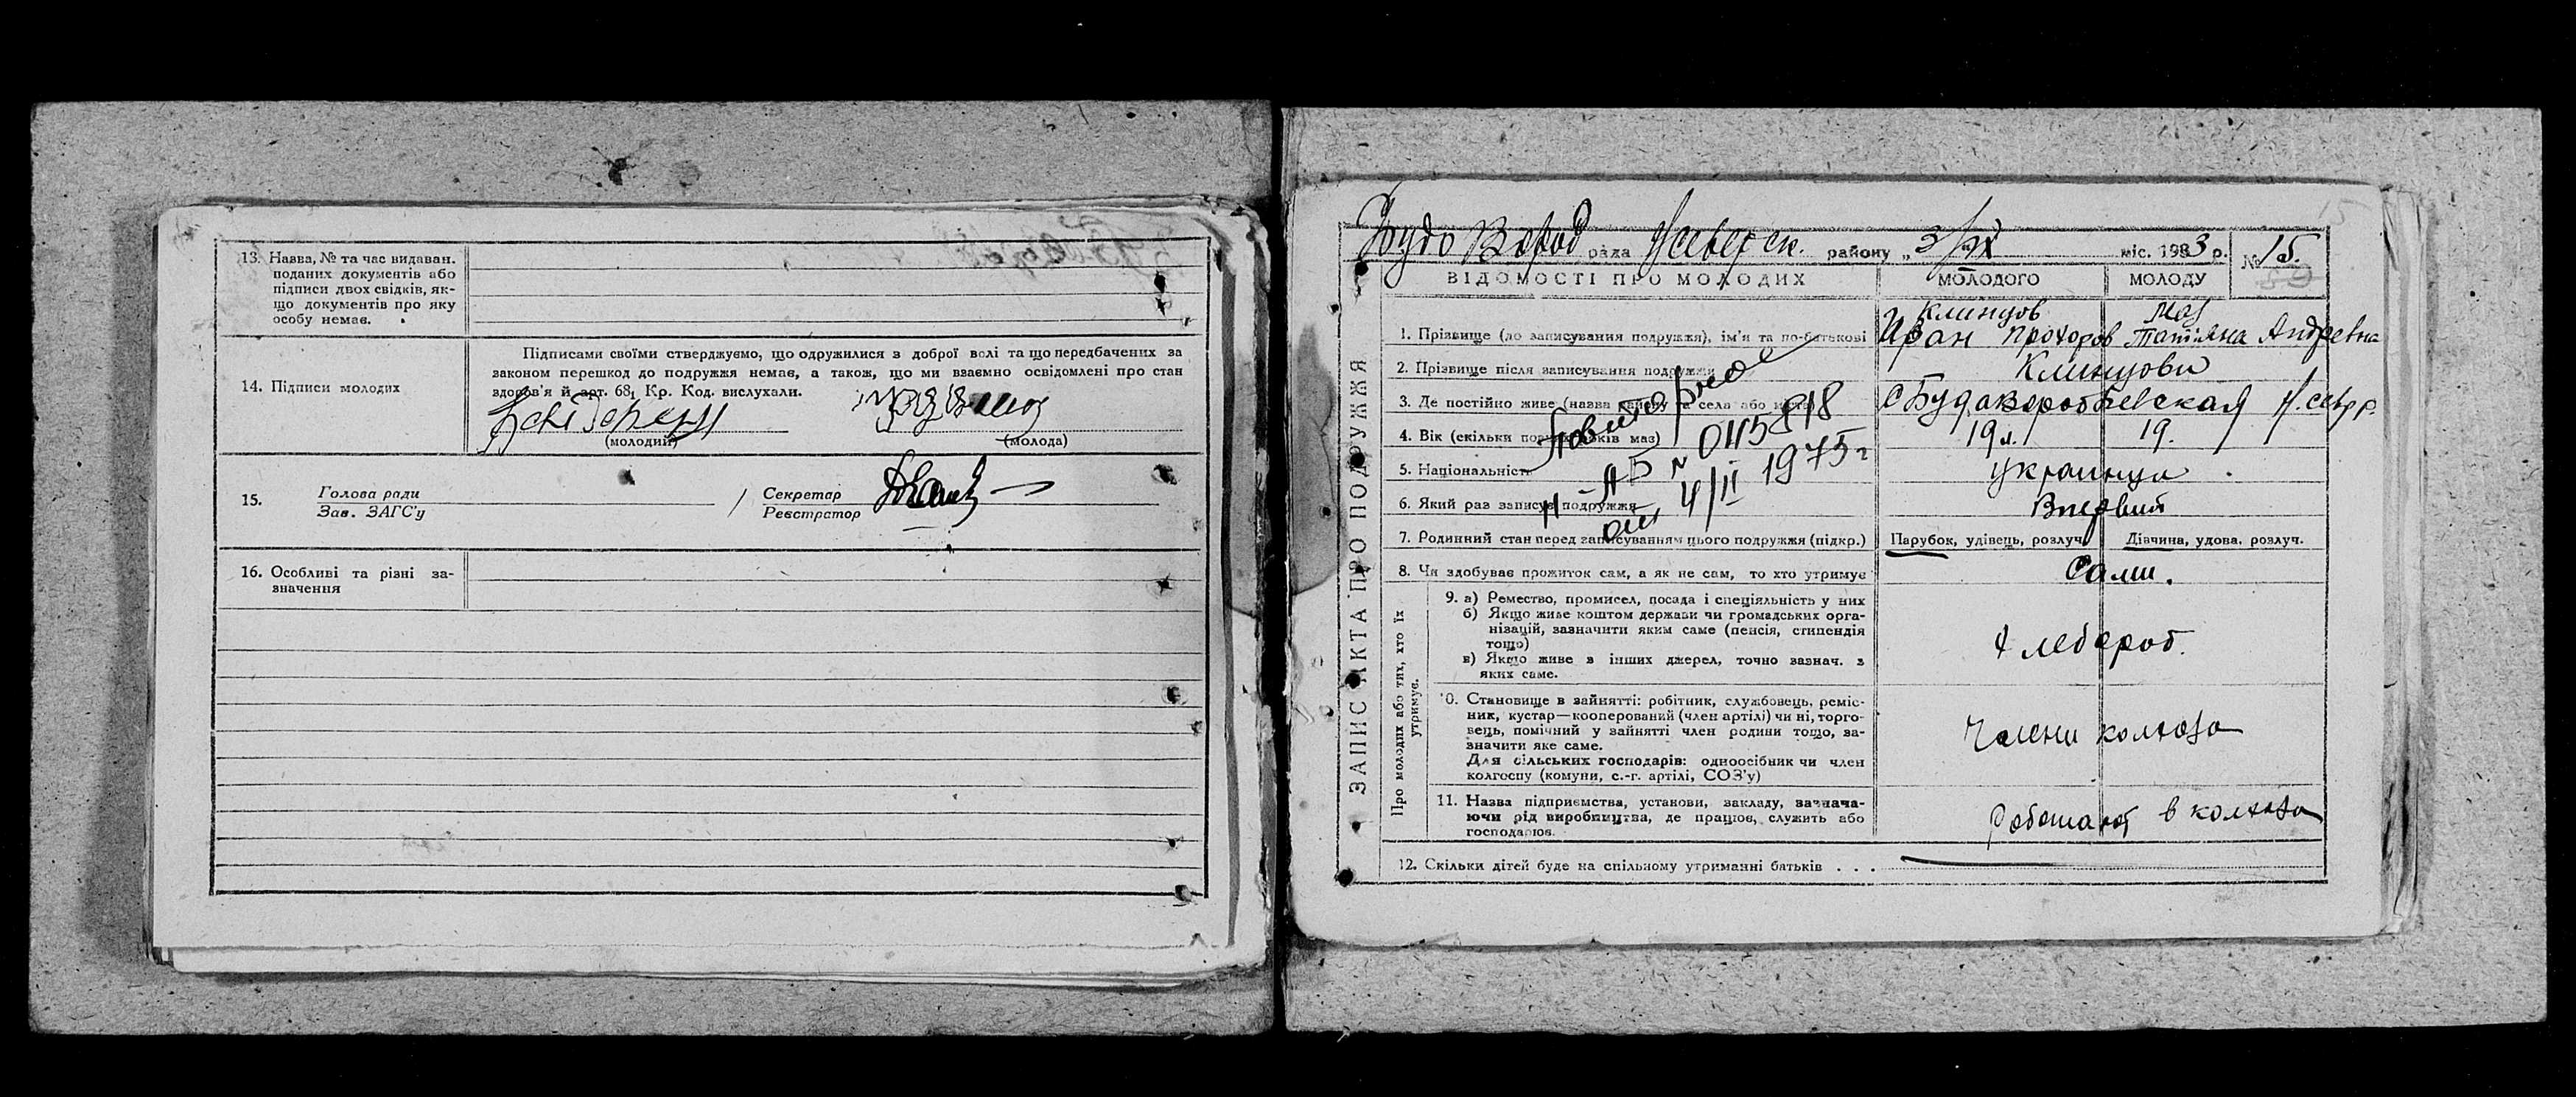 13. Назва, № та час видаван.
поданих документів або
підписи двох свідків, як-
що документів про яку
особу немає.
14. Підписи молодих
Підписами своїми стверджуємо, що одружилися з доброї волі та що передбачених за
законом перешкод до подружжя немає, а також, що ми взаємно освідомлені про стан
здоров'я й арт. 68₁ Кр. Код. вислухали.
(молодий) (молода)
15. Голова ради / Секретар
Зав. ЗАГС'у Реєстратор
16. Особливі та різні за-
значення
Будо Вороб рада Н север ск. району „3/IX міс. 1933 р. № 15.
ВІДОМОСТІ ПРО МОЛОДИХ МОЛОДОГО МОЛОДУ
ЗАПИС АКТА ПРО ПОДРУЖЖЯ
Клинцов
1. Прізвище (до записування подружжя), ім'я та по-батькові Иван Прохоров Татьяна Андревна
2. Прізвище після записування подружжя Клинцови
3. Де постійно живе (назва району та села або міста) с Будаворобьевская Н. севр р.
4. Вік (скільки повних років має) 19 л. 19.
5. Національність украинци
6. Який раз записує подружжя Впервий
7. Родинний стан перед записуванням цього подружжя (підкр.) Парубок, удівець, розлуч. Дівчина, удова, розлуч.
8. Чи здобуває прожиток сам, а як не сам, то хто утримує Сами.
Повиторное
II-АБ № 045818
от 4/II 1975 г
Про молодих або тих, хто їх
утримує.
9. а) Ремество, промисел, посада і спеціяльність у них
б) Якщо живе коштом держави чи громадських орга-
нізацій, зазначити яким саме (пенсія, стипендія
тощо)
в) Якщо живе в інших джерел, точно зазнач. з
яких саме.
Хлебороб.
10. Становище в зайнятті: робітник, службовець, реміс-
ник, кустар—кооперований (член артілі) чи ні, торго-
вець, помічний у зайнятті член родини тощо, за-
значити яке саме.
Для сільських господарів: одноосібник чи член
колгоспу (комуни, с.-г. артілі, СОЗ'у)
Члени колхоза
11. Назва підприємства, установи, закладу, зазнача-
ючи рід виробництва, де працює, служить або
господарює.
Работают в колхозе
12. Скільки дітей буде на спільному утриманні батьків . . .